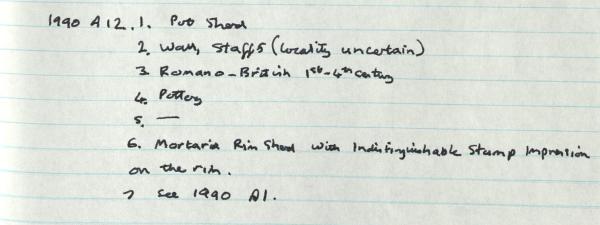 1990 A12. 1. Pot Sherd
2. Wall, Staffs (locality uncertain)
3. Romano-British 1st-4th century
4. Pottery
5. —
6. Mortaria Rim Sherd with Indistinguishable Stamp Impression
on the rim.
7 See 1990 A1.